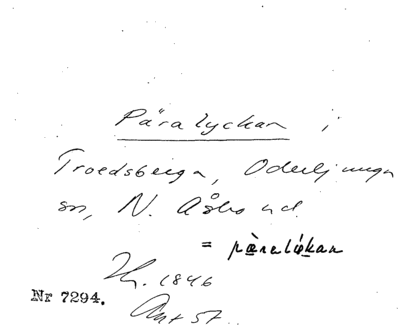 Pära lyckan i
Troedsberga, Oderljunga
sn, N. Åsbo hd.
= pæ̀ralỳkan
Hk. 1846
Nr 7294.
Ant 57.